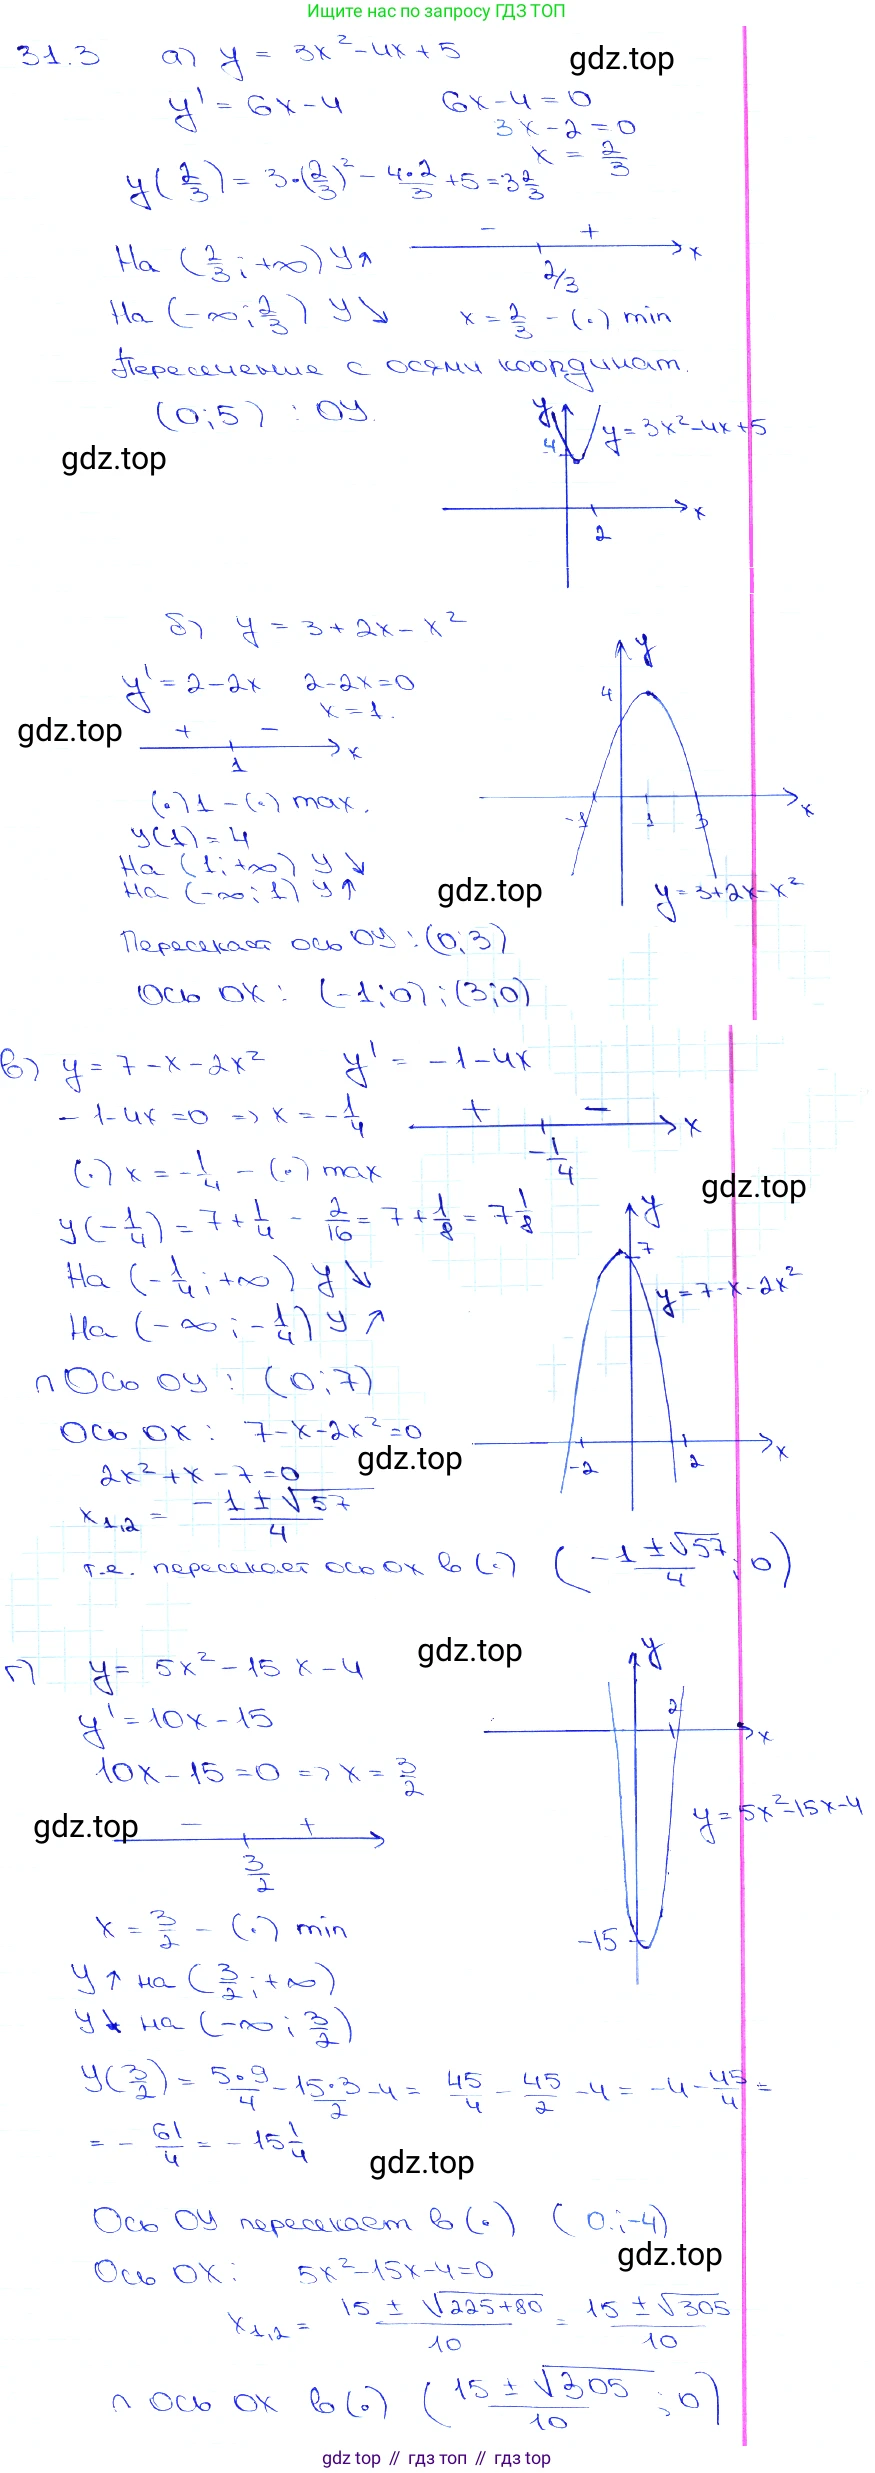 Ищите нас по запросу ГДЗ ТОП
31.3 а) y = 3x² - 4x + 5
gdz.top
y' = 6x - 4 6x - 4 = 0
3x - 2 = 0
x = 2/3
y(2/3) = 3·(2/3)² - 4·2/3 + 5 = 3 2/3
- +
2/3 x
На (2/3; +∞) y↑
На (-∞; 2/3) y↘ x = 2/3 - (·) min
Пересечение с осями координат.
(0; 5) : OY.
gdz.top
y
4
y = 3x² - 4x + 5
2 x
б) y = 3 + 2x - x²
y' = 2 - 2x 2 - 2x = 0
x = 1.
gdz.top
+ -
1 x
(·) 1 - (·) max.
y(1) = 4
На (1; +∞) y↘
На (-∞; 1) y↑
y
4
-1 1 3 x
gdz.top
y = 3 + 2x - x²
Пересекает ось OY : (0; 3)
Ось OX : (-1; 0) ; (3; 0)
в) y = 7 - x - 2x² y' = -1 - 4x
-1 - 4x = 0 => x = -1/4
+ -
-1/4 x
(·) x = -1/4 - (·) max
gdz.top
y(-1/4) = 7 + 1/4 - 2/16 = 7 + 1/8 = 7 1/8
На (-1/4; +∞) y↘
На (-∞; -1/4) y↑
y
7
y = 7 - x - 2x²
-2 2 x
∩ Ось OY : (0; 7)
Ось OX : 7 - x - 2x² = 0
gdz.top
2x² + x - 7 = 0
x1,2 = (-1 ± √57)/4
т.е. пересекает ось OX в (·) ((-1 ± √57)/4; 0)
gdz.top
г) y = 5x² - 15x - 4
y' = 10x - 15
10x - 15 = 0 => x = 3/2
y
2
x
y = 5x² - 15x - 4
-15
gdz.top
- +
3/2
x = 3/2 - (·) min
y↑ на (3/2; +∞)
y↘ на (-∞; 3/2)
y(3/2) = 5·9/4 - 15·3/2 - 4 = 45/4 - 45/2 - 4 = -4 - 45/4 =
= -61/4 = -15 1/4
gdz.top
Ось OY пересекает в (·) (0; -4)
gdz.top
Ось OX : 5x² - 15x - 4 = 0
x1,2 = (15 ± √(225+80))/10 = (15 ± √305)/10
∩ ось OX в (·) ((15 ± √305)/10; 0)
gdz top // гдз топ // gdz top